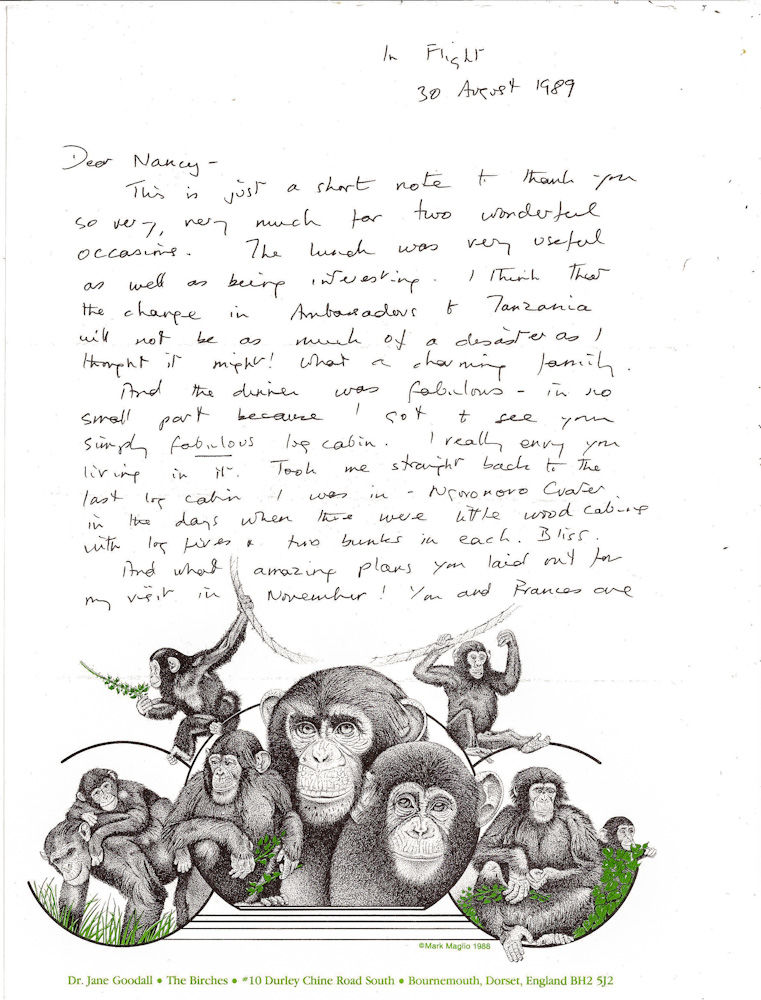 In Flight
30 August 1989
Dear Nancy -
This is just a short note to thank you
so very, very much for two wonderful
occasions. The lunch was very useful
as well as being interesting. I think that
the change in Ambassadors to Tanzania
will not be as much of a disaster as I
thought it might! What a charming family.
And the dinner was fabulous - in no
small part because I got to see your
simply fabulous log cabin. I really envy you
living in it. Took me straight back to the
last log cabin I was in - Ngorongoro Crater
in the days when there were little wood cabins
with log fires & two bunks in each. Bliss.
And what amazing plans you laid out for
my visit in November! You and Frances are
©Mark Maglio 1988
Dr. Jane Goodall • The Birches • #10 Durley Chine Road South • Bournemouth, Dorset, England BH2 5J2